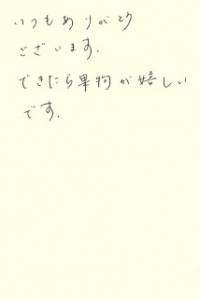 いつもありがとう
ございます.
できたら果物が嬉しい
です.